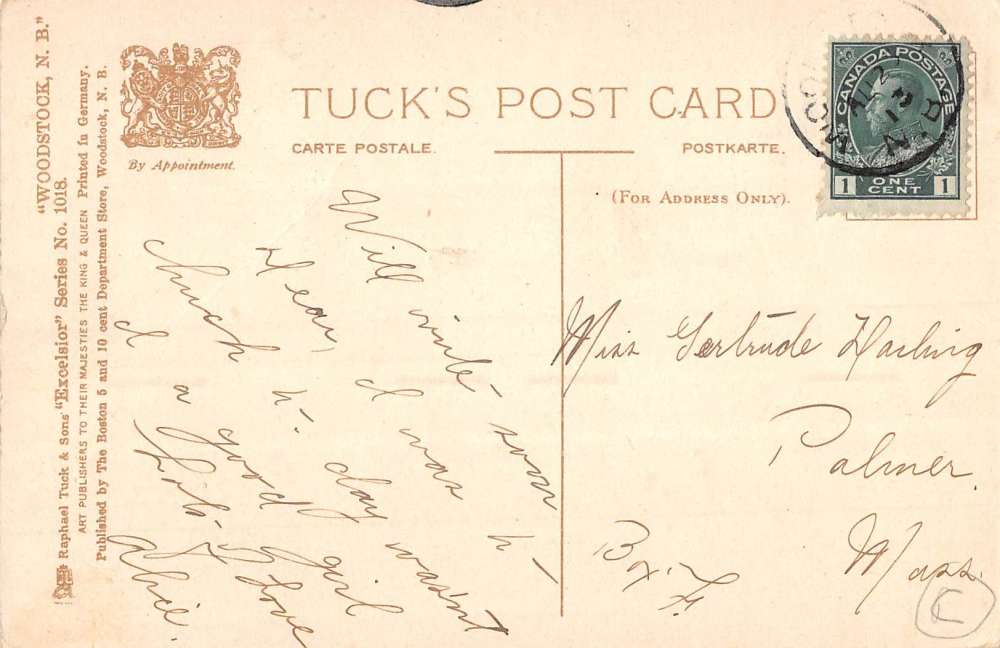 "WOODSTOCK, N. B."
Raphael Tuck & Sons' "Excelsior" Series No. 1018.
ART PUBLISHERS TO THEIR MAJESTIES THE KING & QUEEN Printed in Germany.
Published by The Boston 5 and 10 cent Department Store, Woodstock, N. B.
By Appointment.
TUCK'S POST CARD
CARTE POSTALE.
POSTKARTE.
(FOR ADDRESS ONLY).
CANADA POSTAGE
1 ONE CENT 1
N.B
Will write soon
Dear, I was to
church to-day wasn't
I a good girl
Lots of love
Alice.
Miss Gertrude Harling
Palmer.
Mass.
Box F.
C